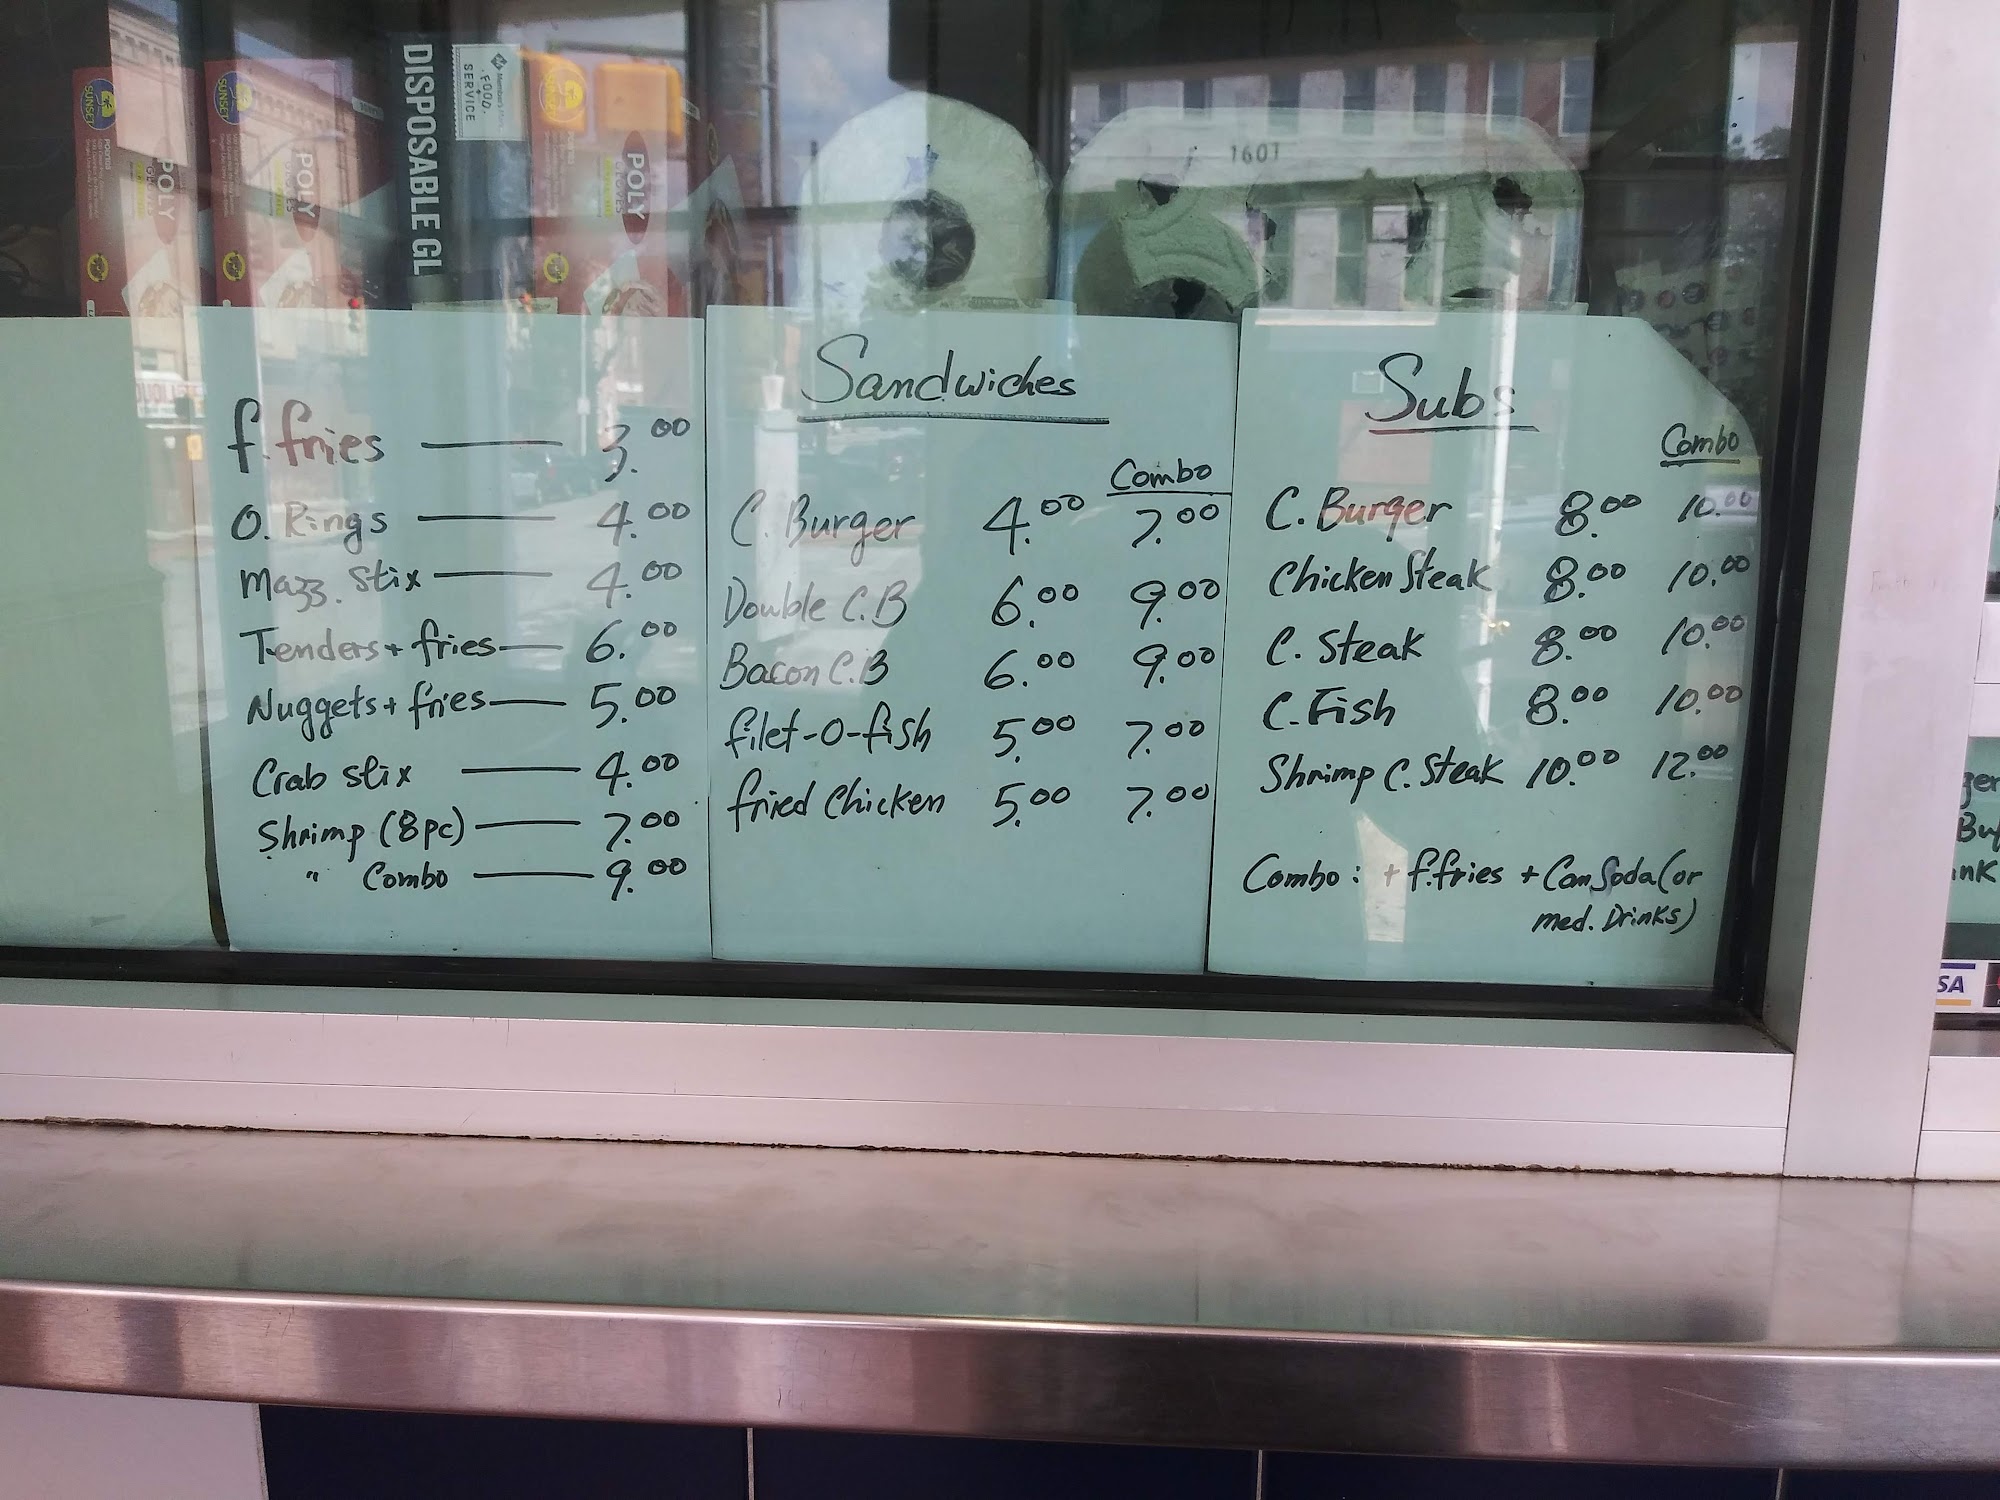 SUNSET
POLY
SUNSET
POLY
DISPOSABLE GL
Member's
FOOD
SERVICE
POLY
GLOVES
1601
f. fries 3.00
O. Rings 4.00
Mazz. Stix 4.00
Tenders + fries 6.00
Nuggets + fries 5.00
Crab stix 4.00
Shrimp (8pc) 7.00
" Combo 9.00
Sandwiches
Combo
C. Burger 4.00 7.00
Double C.B 6.00 9.00
Bacon C.B 6.00 9.00
filet-O-fish 5.00 7.00
fried Chicken 5.00 7.00
Subs
Combo
C. Burger 8.00 10.00
Chicken Steak 8.00 10.00
C. Steak 8.00 10.00
C. Fish 8.00 10.00
Shrimp C. Steak 10.00 12.00
Combo: + f.fries + Can Soda (or
med. Drinks)
ger
Buf
ink
SA